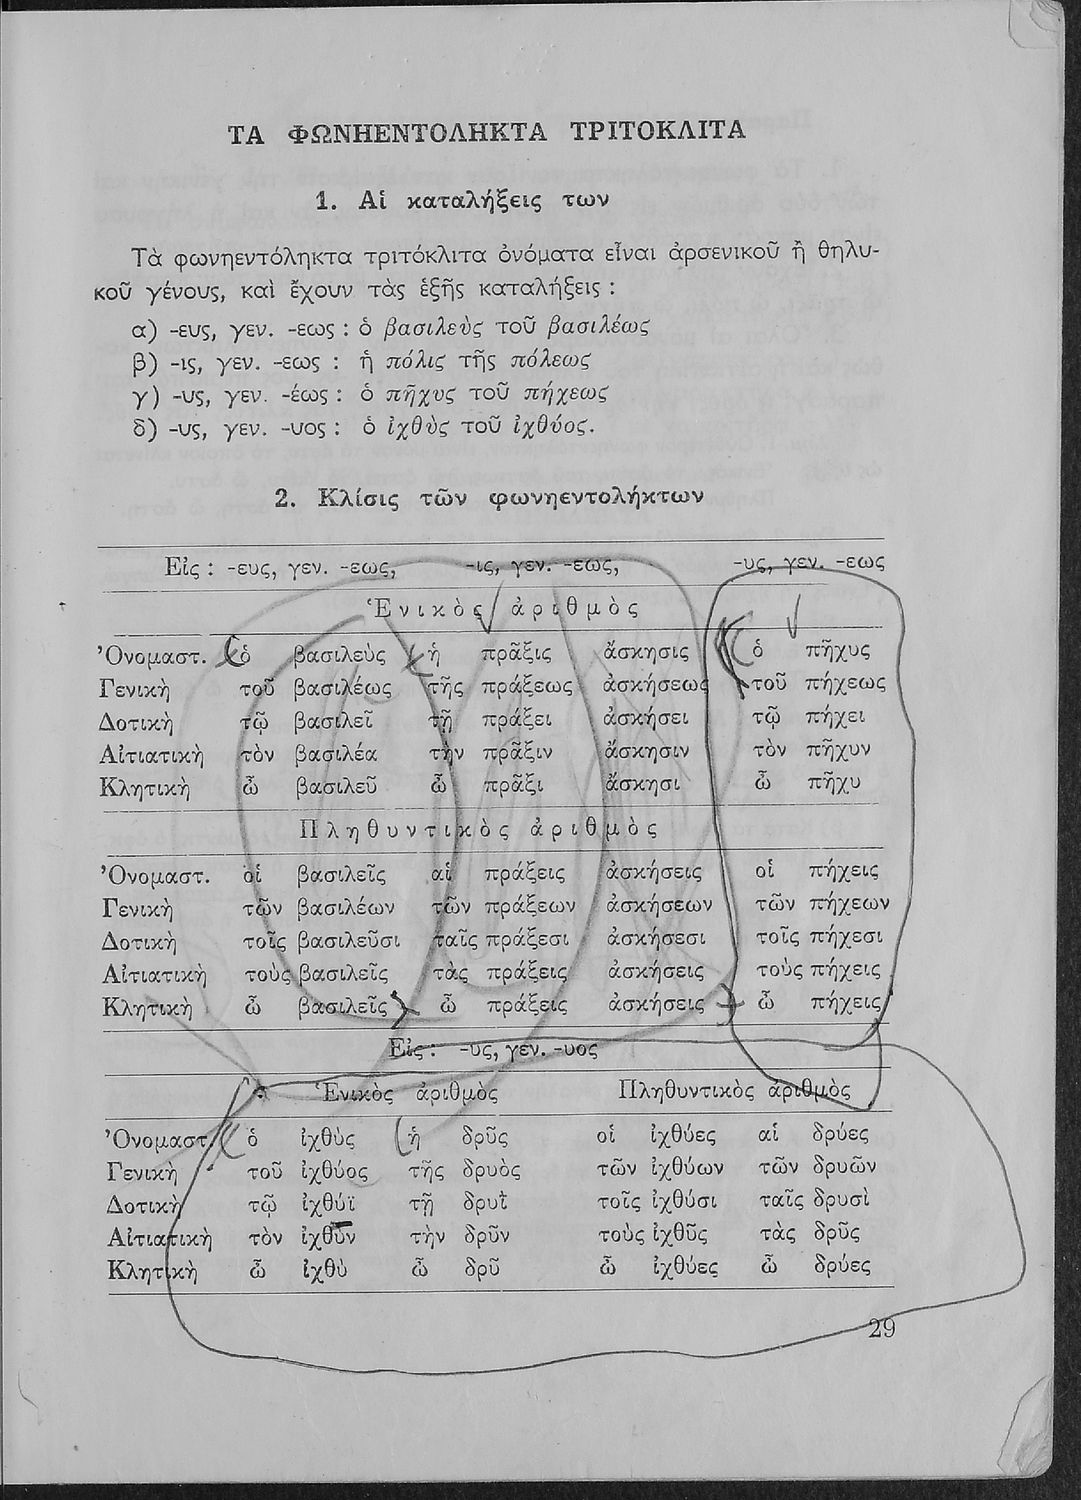 ΤΑ ΦΩΝΗΕΝΤΟΛΗΚΤΑ ΤΡΙΤΟΚΛΙΤΑ
1. Αἱ καταλήξεις των
Τὰ φωνηεντόληκτα τριτόκλιτα ὀνόματα εἶναι ἀρσενικοῦ ἢ θηλυ-
κοῦ γένους, καὶ ἔχουν τὰς ἑξῆς καταλήξεις :
α) -ευς, γεν. -εως : ὁ βασιλεὺς τοῦ βασιλέως
β) -ις, γεν. -εως : ἡ πόλις τῆς πόλεως
γ) -υς, γεν. -έως : ὁ πῆχυς τοῦ πήχεως
δ) -υς, γεν. -υος : ὁ ἰχθὺς τοῦ ἰχθύος.
2. Κλίσις τῶν φωνηεντολήκτων
Εἰς : -ευς, γεν. -εως, -ις, γεν. -εως, -υς, γεν. -εως
Ἑνικὸς ἀριθμὸς
Ὀνομαστ. ὁ βασιλεὺς ἡ πρᾶξις ἄσκησις ὁ πῆχυς
Γενικὴ τοῦ βασιλέως τῆς πράξεως ἀσκήσεως τοῦ πήχεως
Δοτικὴ τῷ βασιλεῖ τῇ πράξει ἀσκήσει τῷ πήχει
Αἰτιατικὴ τὸν βασιλέα τὴν πρᾶξιν ἄσκησιν τὸν πῆχυν
Κλητικὴ ὦ βασιλεῦ ὦ πρᾶξι ἄσκησι ὦ πῆχυ
Πληθυντικὸς ἀριθμὸς
Ὀνομαστ. οἱ βασιλεῖς αἱ πράξεις ἀσκήσεις οἱ πήχεις
Γενικὴ τῶν βασιλέων τῶν πράξεων ἀσκήσεων τῶν πήχεων
Δοτικὴ τοῖς βασιλεῦσι ταῖς πράξεσι ἀσκήσεσι τοῖς πήχεσι
Αἰτιατικὴ τοὺς βασιλεῖς τὰς πράξεις ἀσκήσεις τοὺς πήχεις
Κλητικὴ ὦ βασιλεῖς ὦ πράξεις ἀσκήσεις ὦ πήχεις
Εἰς : -υς, γεν. -υος
Ἑνικὸς ἀριθμὸς Πληθυντικὸς ἀριθμὸς
Ὀνομαστ. ὁ ἰχθὺς ἡ δρῦς οἱ ἰχθύες αἱ δρύες
Γενικὴ τοῦ ἰχθύος τῆς δρυὸς τῶν ἰχθύων τῶν δρυῶν
Δοτικὴ τῷ ἰχθύϊ τῇ δρυῒ τοῖς ἰχθύσι ταῖς δρυσὶ
Αἰτιατικὴ τὸν ἰχθῦν τὴν δρῦν τοὺς ἰχθῦς τὰς δρῦς
Κλητικὴ ὦ ἰχθὺ ὦ δρῦ ὦ ἰχθύες ὦ δρύες
29